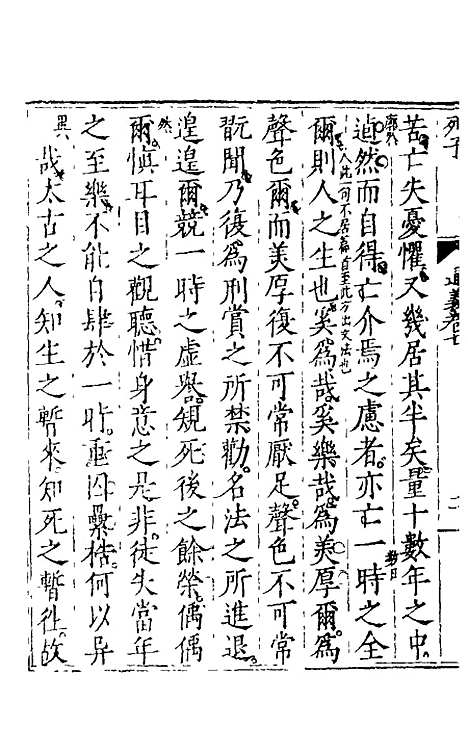 列子
通義卷七
苦亡失憂懼又幾居其半矣量十數年之中
逌然而自得亡介焉之慮者亦亡一時之全
爾則人之生也奚爲哉奚樂哉爲美厚爾爲
聲色爾而美厚復不可常厭足聲色不可常
翫聞乃復爲刑賞之所禁勸名法之所進退
遑遑爾競一時之虛譽䂓死後之餘榮偊偊
爾慎耳目之觀聽惜身意之是非徒失當年
之至樂不能自肆於一時重囚纍梏何以异
哉太古之人知生之暫來知死之暫徃故
然
異